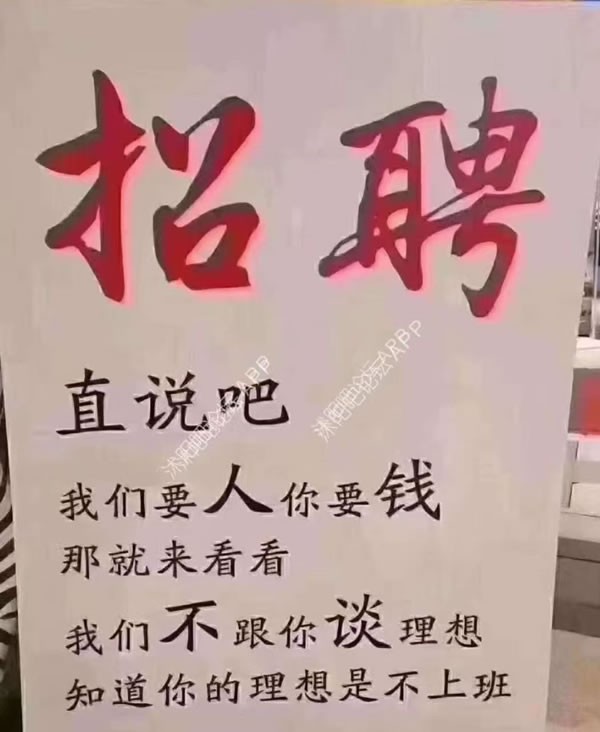 招聘
直说吧
我们要人你要钱
那就来看看
我们不跟你谈理想
知道你的理想是不上班
沭阳吧论坛APP
沭阳吧论坛APP